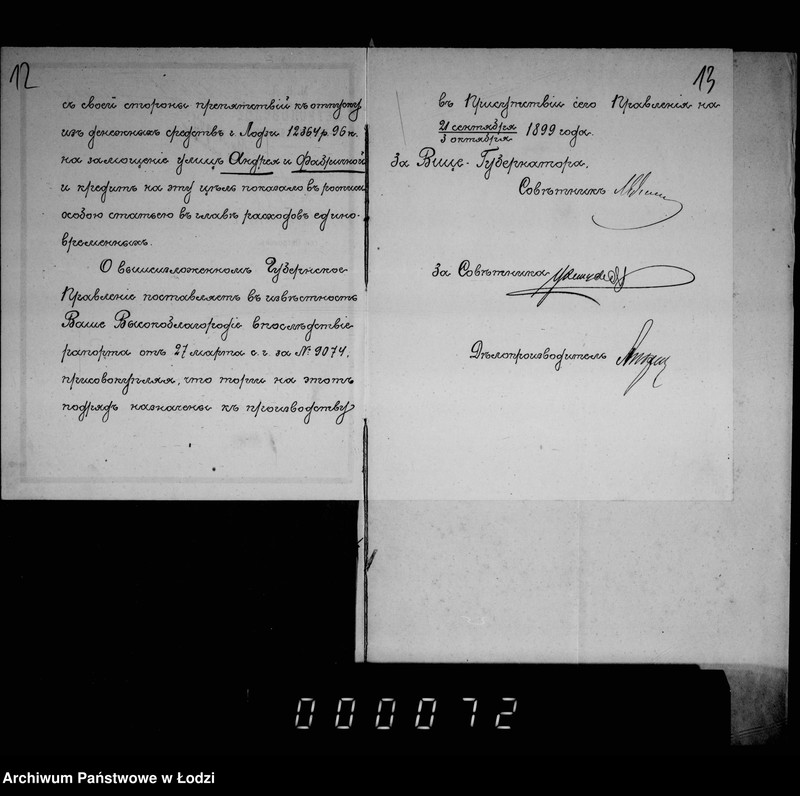 12
съ своей стороны препятствій къ отпуску
изъ денежныхъ средствъ г. Лодзи 12364 р. 96 к.
на замощеніе улицъ Андрея и Фабричной
и кредитъ на эту цѣль показало въ росписи
особою статьею въ главѣ расходовъ едино-
временныхъ.
О вышеизложенномъ Губернское
Правленіе поставляетъ въ извѣстность
Ваше Высокоблагородіе впослѣдствіе
рапорта отъ 27 марта с. г. за № 9074,
присовокупляя, что торги на этотъ
подрядъ назначены къ производству
13
въ Присутствіи сего Правленія на
21 сентября
3 октября 1899 года.
За Вице-Губернатора,
Совѣтникъ
За Совѣтника
Дѣлопроизводитель
000072
Archiwum Państwowe w Łodzi